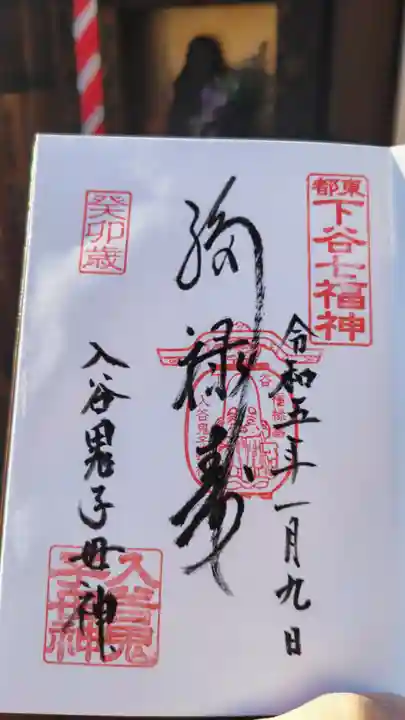 東都
下谷七福神
令和五年一月九日
福禄寿
癸卯歳
入谷鬼子母神
入谷鬼
子母神